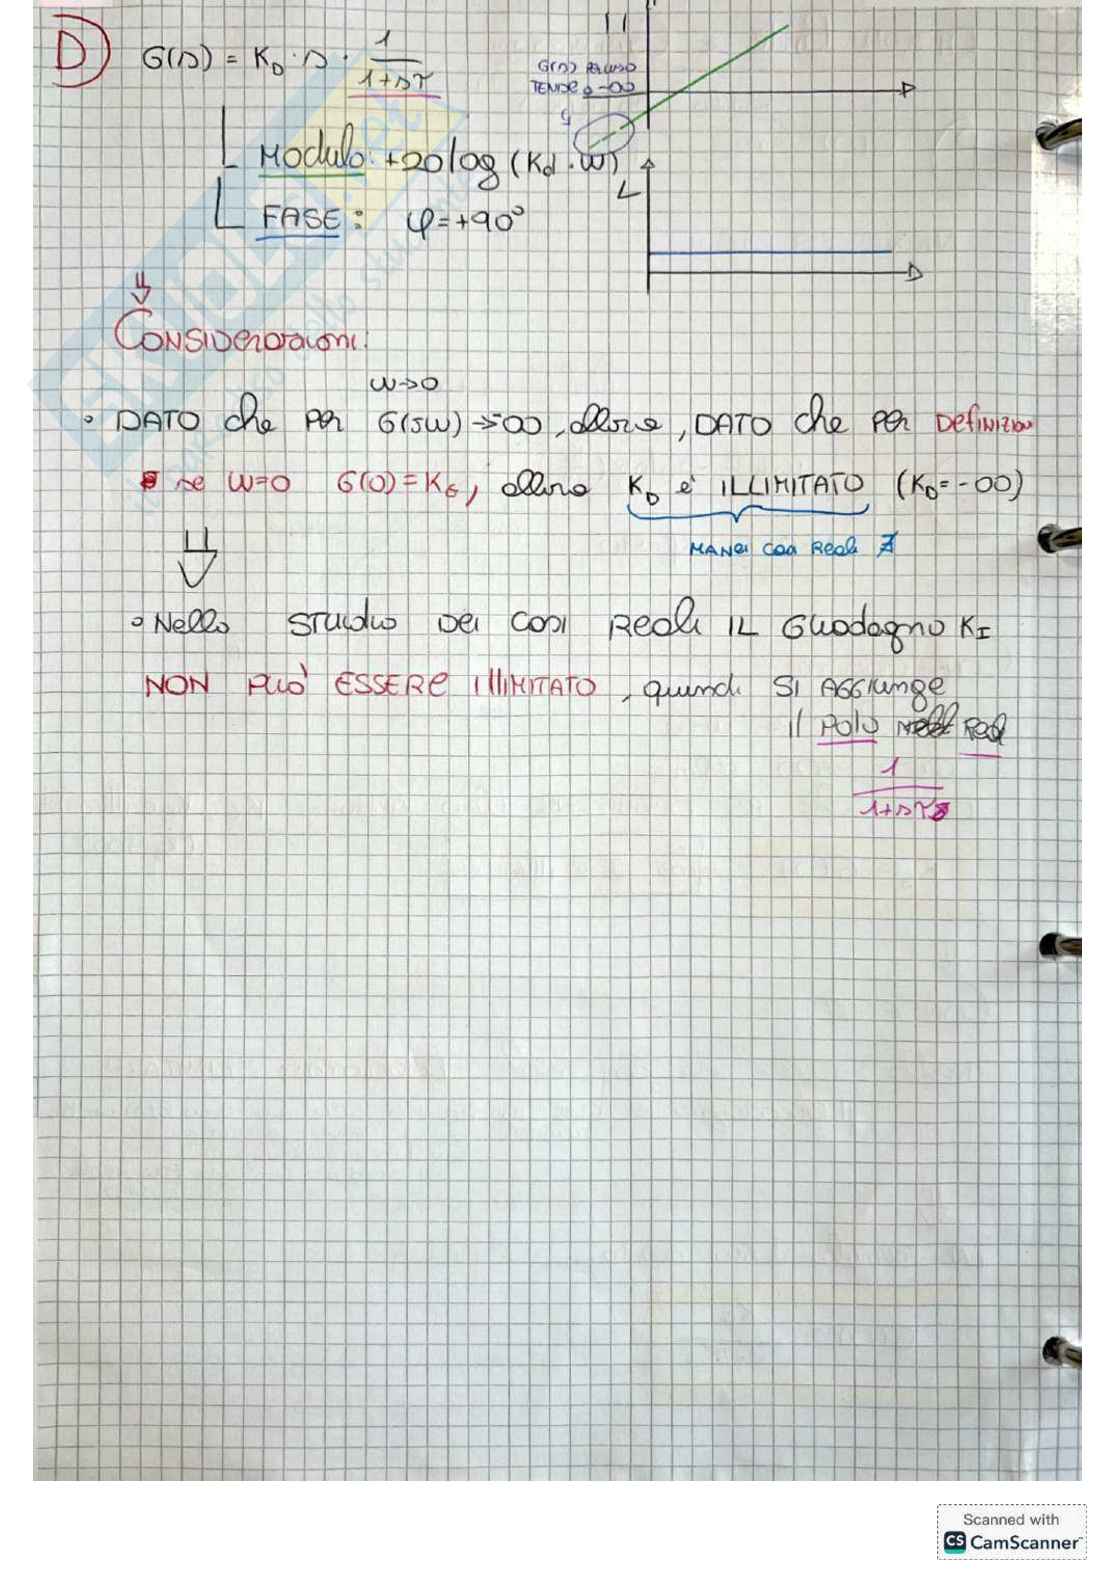 D) G(s) = K_D · s · 1/(1+sτ)
| |
G(s) per ω=0
TENDE a -∞
Modulo: +20log (Kd · ω)
FASE: φ=+90°
Considerazioni:
ω→0
• DATO che per G(jω) → -∞, allora, DATO che per Definizion
se ω=0 G(0)=K_G, allora K_D è ILLIMITATO (K_D = -∞)
Nei casi Reali ∄
• Nello studio dei casi Reali IL Guadagno K_I
NON può ESSERE IllIMITATO, quindi SI AGGIunge
il Polo Real
1/(1+sτ)
Scanned with
CS CamScanner